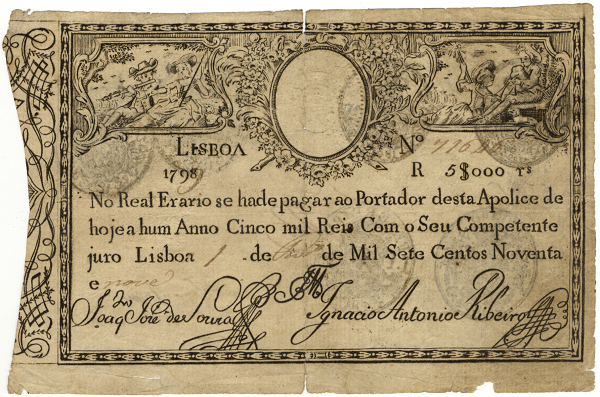 LISBOA Nº
1798 R 5$000 rs
No Real Erario se hade pagar ao Portador desta Apolice de
hoje a hum Anno Cinco mil Reis Com o Seu Competente
juro Lisboa 1 de de Mil Sete Centos Noventa
e nove
Joaqm José de Souza Ignacio Antonio Ribeiro